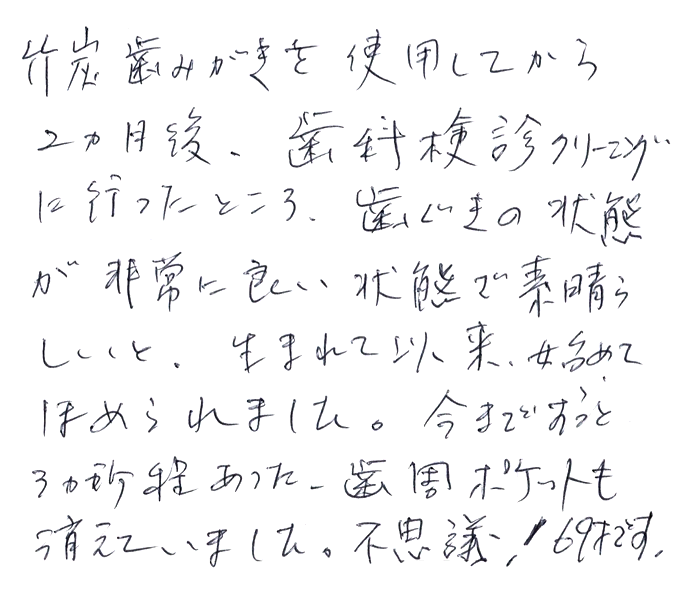 竹炭歯みがきを使用してから
2ヵ月後、歯科検診クリーニング
に行ったところ、歯ぐきの状態
が非常に良い状態で素晴ら
しいと、生まれて以来、始めて
ほめられました。今までずっと
3ヵ所程あった、歯周ポケットも
消えていました。不思議！69才です。